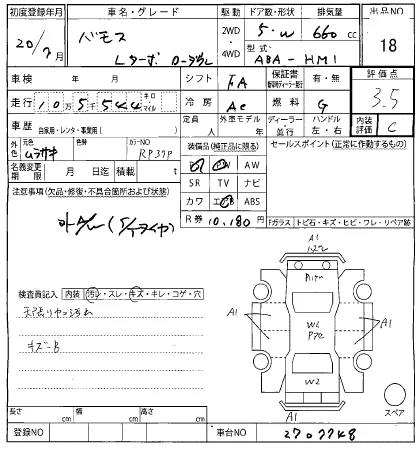 初度登録年月 車名・グレード 駆動 ドア数・形状 排気量 出品NO
20/7 バモス 2WD 5・W 660 cc 18
Lターボ ローダウン 4WD 型式 ABA-HM1
車検 シフト FA 保証書 有・無 評価点
走行 10万5千544 キロ マイル 冷房 AC 燃料 G 3.5
車歴 自家用・レンタ・事業用( ) 定員 人 外車モデル 年 ディーラー 並行 ハンドル 左・右 内装評価 C
元色 ムラサキ 色替 カラーNO RP37P 装備品(純正品に限る) セールスポイント(正常に作動するもの)
名義変更期限 月 日迄 積載 t PS PW AW
注意事項(欠品・修復・不具合箇所および状態) SR TV ナビ
カワ エアB ABS
R券 10,180円 Fガラス トビ石・キズ・ヒビ・ワレ・リペア跡
検査員記入 内装 汚レ・スレ・キズ・キレ・コゲ・穴
天張りヤニ汚れ
キズ-B
A1
A1
A1
W2
W2
A1
スペア
長さ cm 幅 cm 高さ cm
登録NO 車台NO 2707748